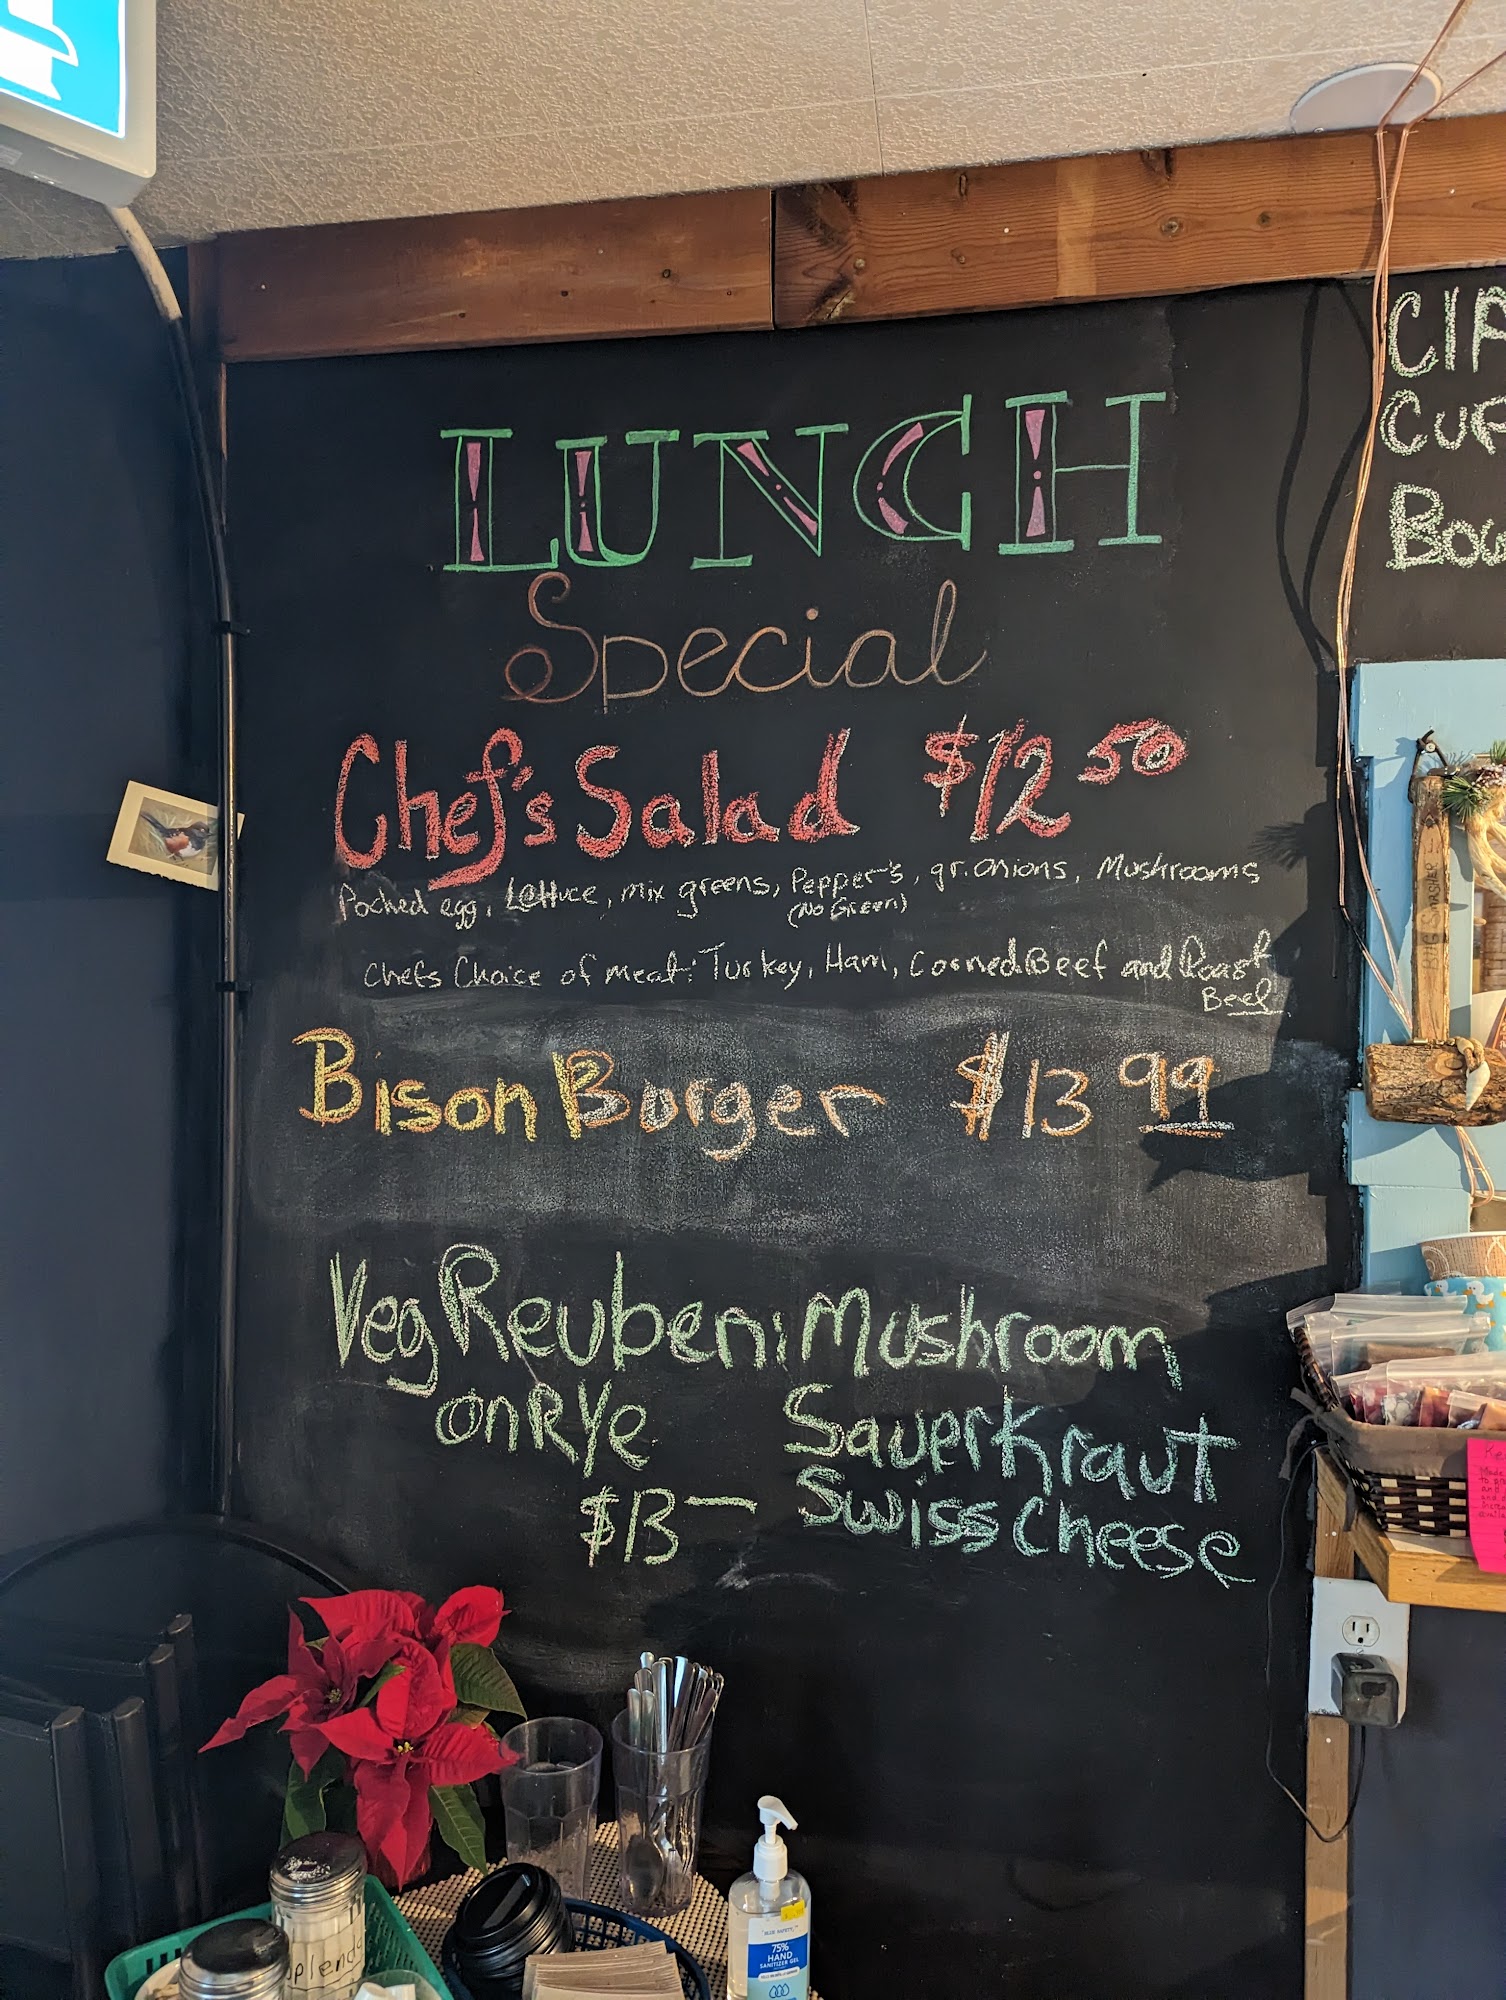 LUNCH
Special
Chef's Salad $12 50
Poched egg, Lettuce, mix greens, Pepper's, gr. onions, Mushrooms
(No Green)
Chefs Choice of meat: Turkey, Ham, Corned Beef and Roast
Beef
Bison Burger $13 99
Veg Reuben: Mushroom
on Rye Sauerkraut
$13— Swiss Cheese
Bug Smasher
75%
HAND
SANITIZER GEL